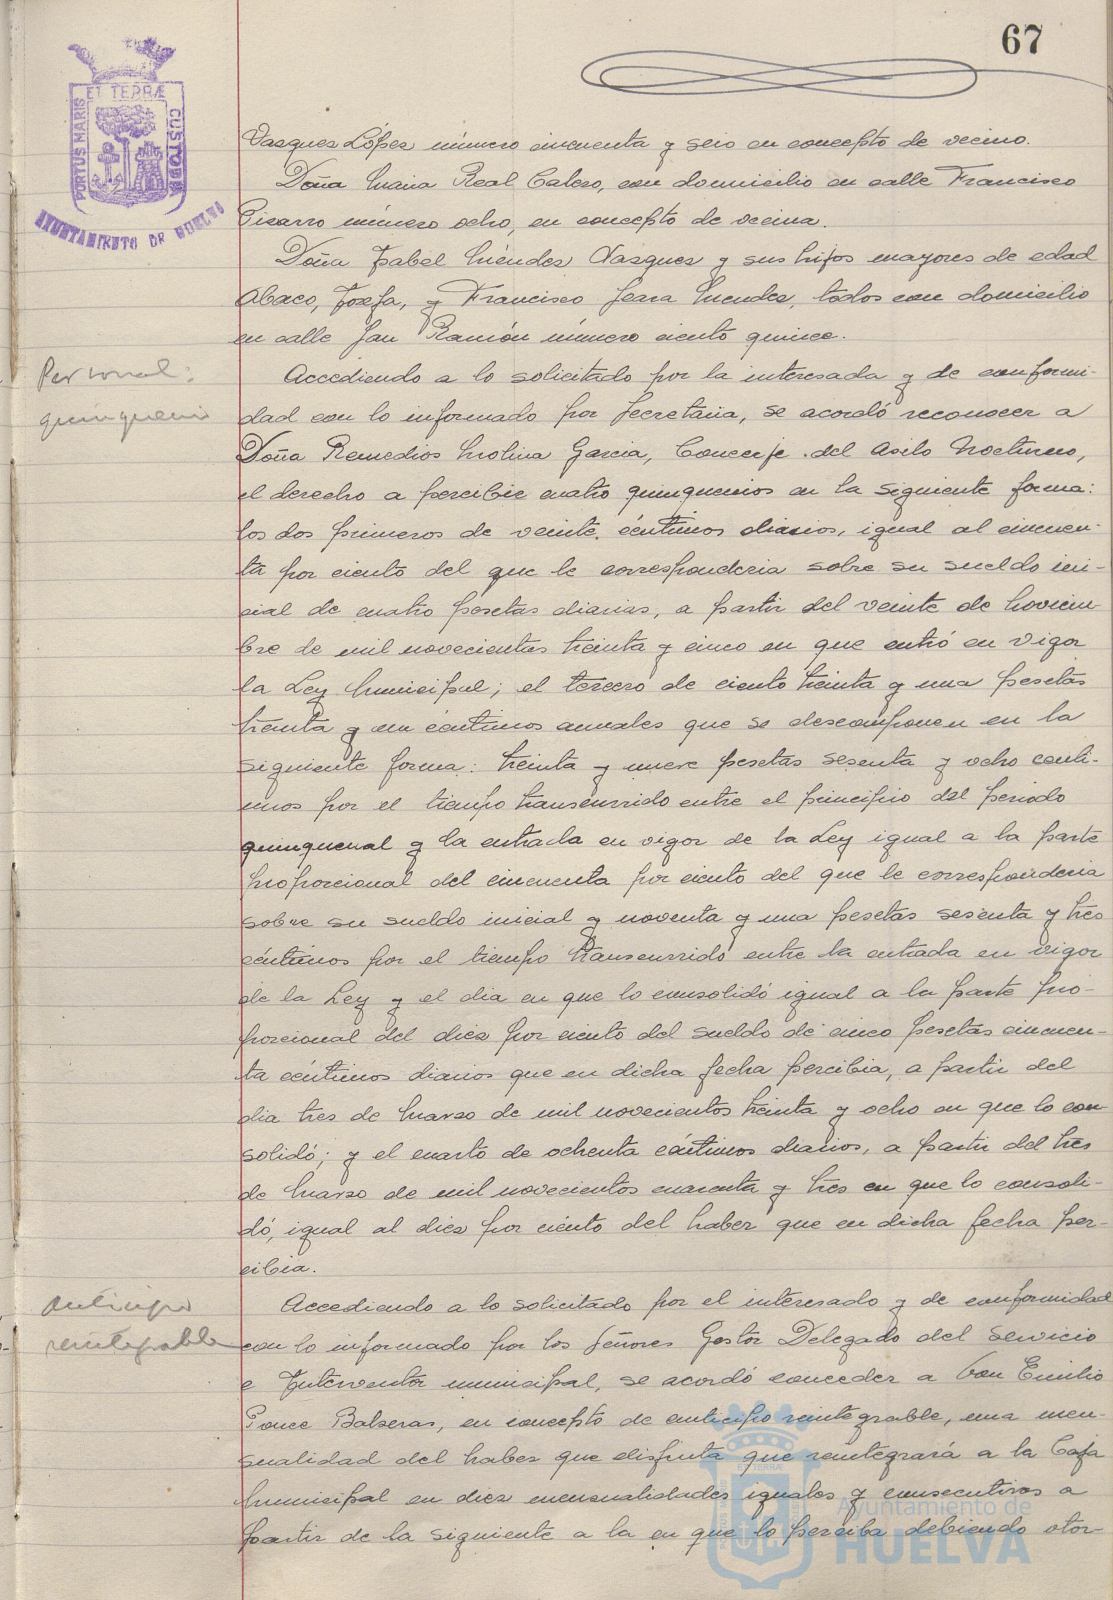 67
ET TERRÆ
PORTUS MARIS
CUSTODIA
AYUNTAMIENTO DE HUELVA
Vasquez López número cincuenta y seis en concepto de vecino.
Doña Maria Real Calero, con domicilio en calle Francisco
Pizarro número ocho, en concepto de vecina.
Doña Isabel Méndez Vasquez y sus hijos mayores de edad
Josefa, y Francisco Mendez, todos con domicilio
en calle San Ramón número ciento quince.
Personal:
quinquenios
Accediendo a lo solicitado por la interesada y de conformi-
dad con lo informado por Secretaria, se acordó reconocer a
Doña Remedios Molina Garcia, Conserje del Asilo Nocturno,
el derecho a percibir cuatro quinquenios en la siguiente forma:
los dos primeros de veinte céntimos diarios, igual al cincuen-
ta por ciento del que le corresponderia sobre su sueldo ini-
cial de cuatro pesetas diarias, a partir del veinte de Noviem-
bre de mil novecientos treinta y cinco en que entró en vigor
la Ley Municipal; el tercero de ciento treinta y una pesetas
treinta y un céntimos anuales que se descomponen en la
siguiente forma: treinta y nueve pesetas sesenta y ocho centi-
mos por el tiempo transcurrido entre el principio del periodo
quinquenal y la entrada en vigor de la Ley igual a la parte
proporcional del cincuenta por ciento del que le corresponderia
sobre su sueldo inicial y noventa y una pesetas sesenta y tres
céntimos por el tiempo transcurrido entre la entrada en vigor
de la Ley y el dia en que lo consolidó igual a la parte pro-
porcional del diez por ciento del sueldo de cinco pesetas cincuen-
ta céntimos diarios que en dicha fecha percibia, a partir del
dia tres de Marzo de mil novecientos treinta y ocho en que lo con
solidó; y el cuarto de ochenta céntimos diarios, a partir del tres
de Marzo de mil novecientos cuarenta y tres en que lo consoli-
dó, igual al diez por ciento del haber que en dicha fecha per-
cibia.
Anticipo
reintegrable
Accediendo a lo solicitado por el interesado y de conformidad
con lo informado por los Señores Gestor Delegado del Servicio
e Interventor municipal, se acordó conceder a Don Emilio
Ponce Balseras, en concepto de anticipo reintegrable, una men-
sualidad del haber que disfruta que reintegrará a la Caja
Municipal en diez mensualidades iguales y consecutivas a
partir de la siguiente a la en que lo perciba debiendo otor-
Ayuntamiento de
HUELVA